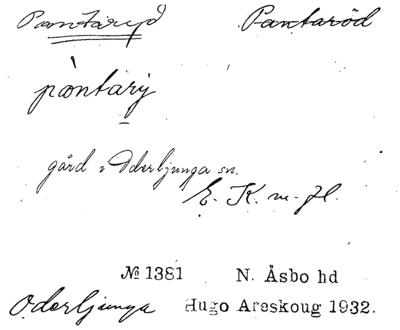 Pantaryd Pantaröd
pantarý
gård i Oderljunga sn.
E. K. m. fl.
№ 1381 N. Åsbo hd
Oderljunga Hugo Areskoug 1932.